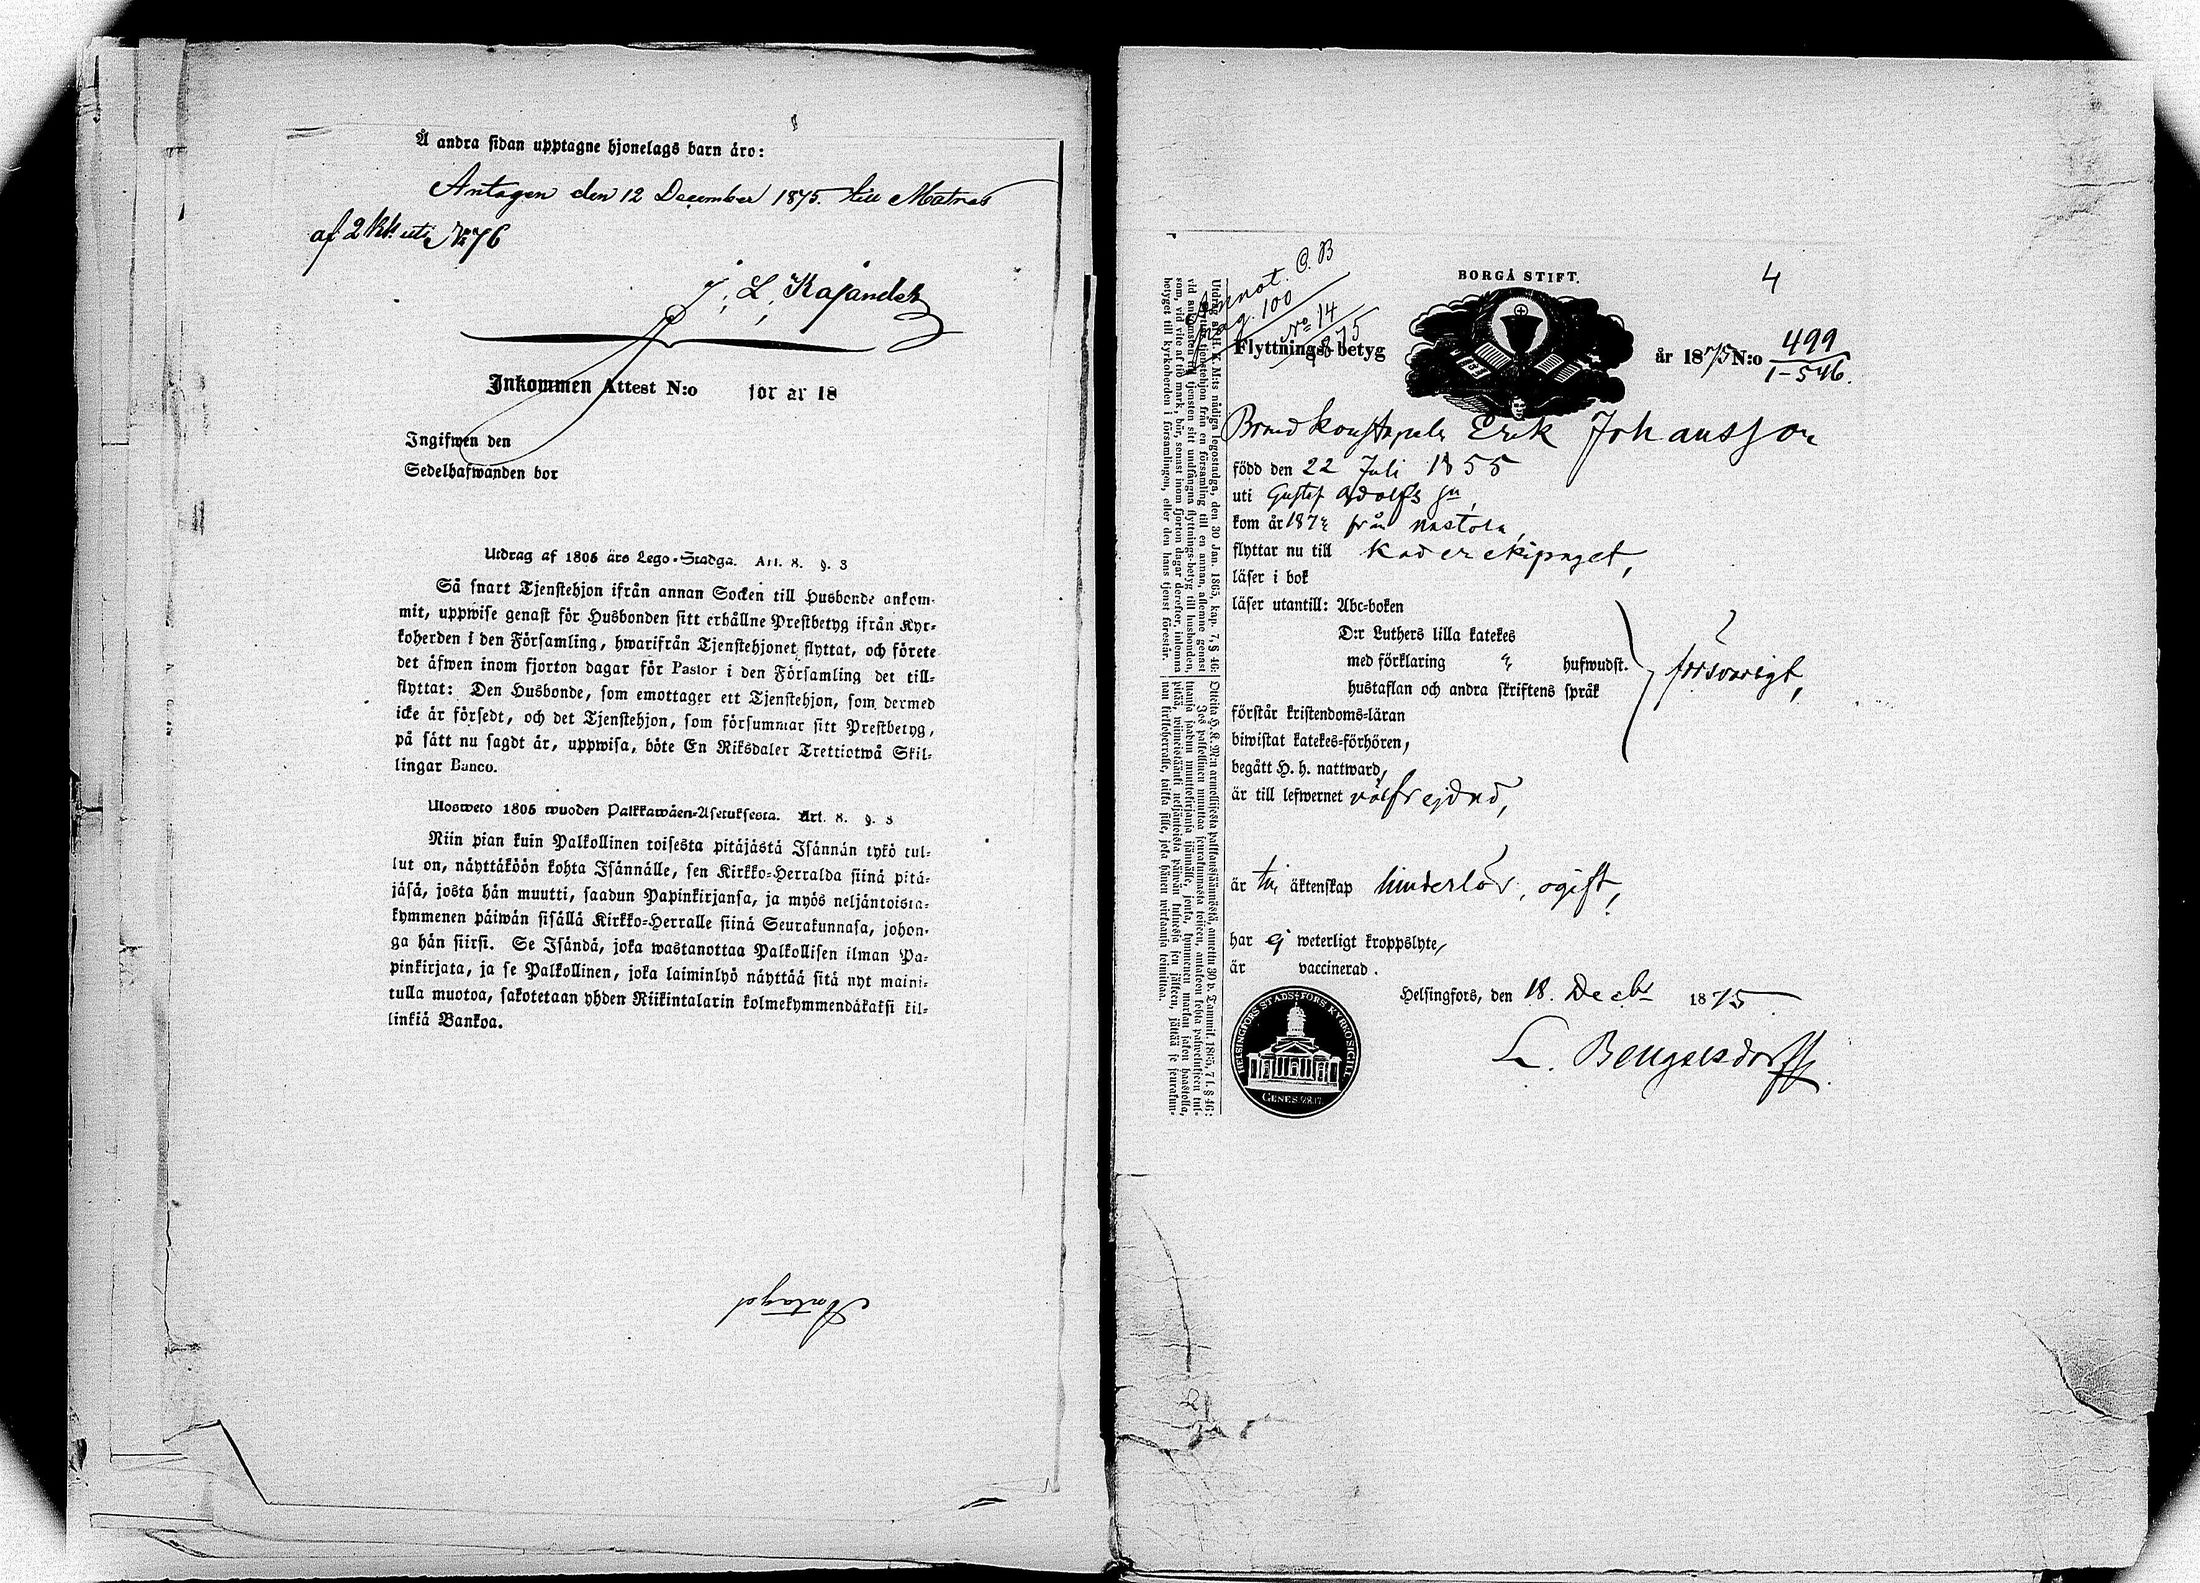 Å andra sidan upptagne hjonelags barn äro:
Antagen den 12 December 1875. till Matros
af 2 Kl. uti No 76
J. L. Kajander
Inkommen Attest N:o för år 18
Ingifwen den
Sedelhafwanden bor
Utdrag af 1805 års Lego-Stadga. Art. 8. §. 3
Så snart Tjenstehjon ifrån annan Socken till Husbonde ankom-
mit, uppwise genast för Husbonden sitt erhållne Prestbetyg ifrån Kyr-
koherden i den Församling, hwarifrån Tjenstehjonet flyttat, och förete
det äfwen inom fjorton dagar för Pastor i den Församling det till-
flyttat: Den Husbonde, som emottager ett Tjenstehjon, som dermed
icke är försedt, och det Tjenstehjon, som försummar sitt Prestbetyg,
på sätt nu sagdt är, uppwisa, böte En Riksdaler Trettiotwå Skil-
lingar Banco.
Ulosweto 1805 wuoden Palkkawäen-Asetuksesta. Art. 8. §. 3
Niin pian kuin Palkollinen toisesta pitäjästä Isännän tykö tul-
lut on, näyttäköön kohta Isännälle, sen Kirkko-Herralda siinä pitä-
jäsä, josta hän muutti, saadun Papinkirjansa, ja myös neljäntoista-
kymmenen päiwän sisällä Kirkko-Herralle siinä Seurakunnasa, johon-
ga hän siirsi. Se Isändä, joka wastanottaa Palkollisen ilman Pa-
pinkirjata, ja se Palkollinen, joka laiminlyö näyttää sitä nyt maini-
tulla muotoa, sakotetaan yhden Riikintalarin kolmekymmendäkaksi kil-
linkiä Bankoa.
Antagd
4
BORGÅ STIFT.
Annot. C. B
pag. 100
No 14
1875
Flyttnings-betyg
år 1875 N:o 499
1-546.
Brandkonstapeln Erik Johansson
född den 22 Juli 1855
uti Gustaf Adolfs sn,
kom år 187 från Nastola,
flyttar nu till Kader ekipaget,
läser i bok
läser utantill: Abc-boken
D:r Luthers lilla katekes
med förklaring " hufwudst.
försvarligt,
hustaflan och andra skriftens språk
förstår kristendoms-läran
biwistat katekes-förhören,
begått H. h. nattward,
är till lefwernet välfrejdad,
är till äktenskap hinderlös, ogift,
har ej weterligt kroppslyte,
är vaccinerad.
Helsingfors, den 18. Decbr 1875
L. Bengelsdorff
HELSINGFORS STADSFÖRS KYRKOSIGILL
GENES. 28.17.